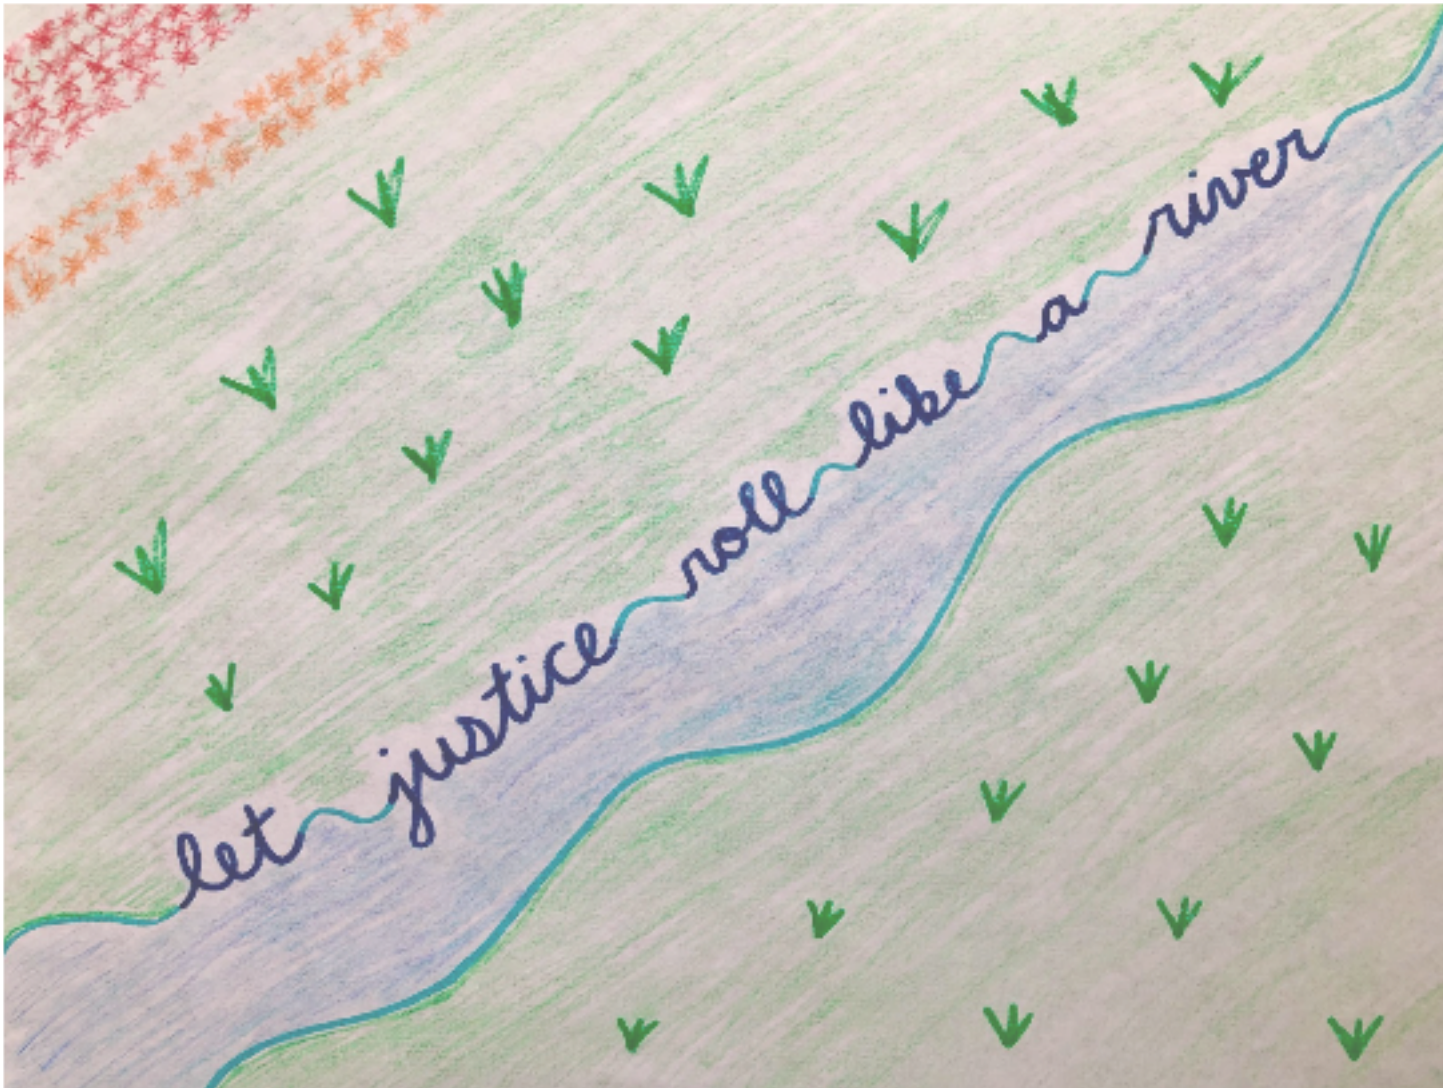 let justice roll like a river